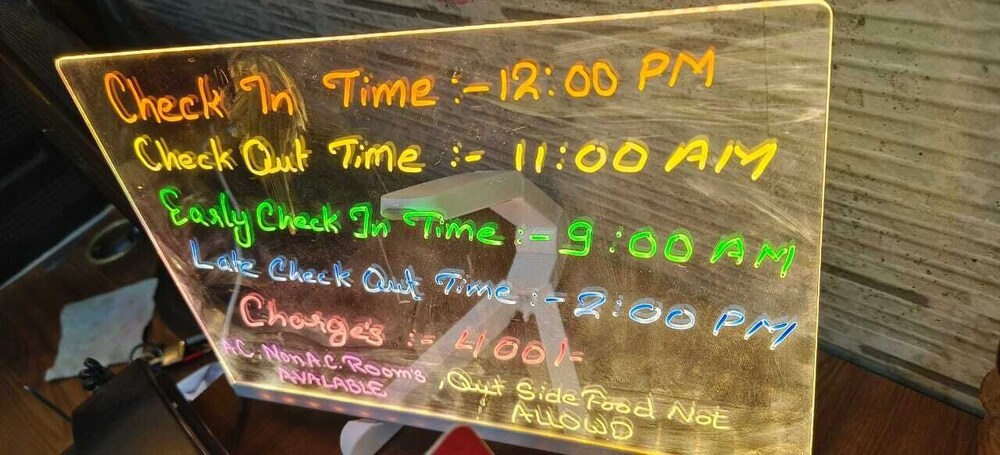 Check In Time :- 12:00 PM
Check Out Time :- 11:00 AM
Early Check In Time :- 9:00 AM
Late Check Out Time :- 2:00 PM
Charges :- 400/-
A.C. Non A.C. Room's
AVALABLE
Out Side Food Not
ALLOWD